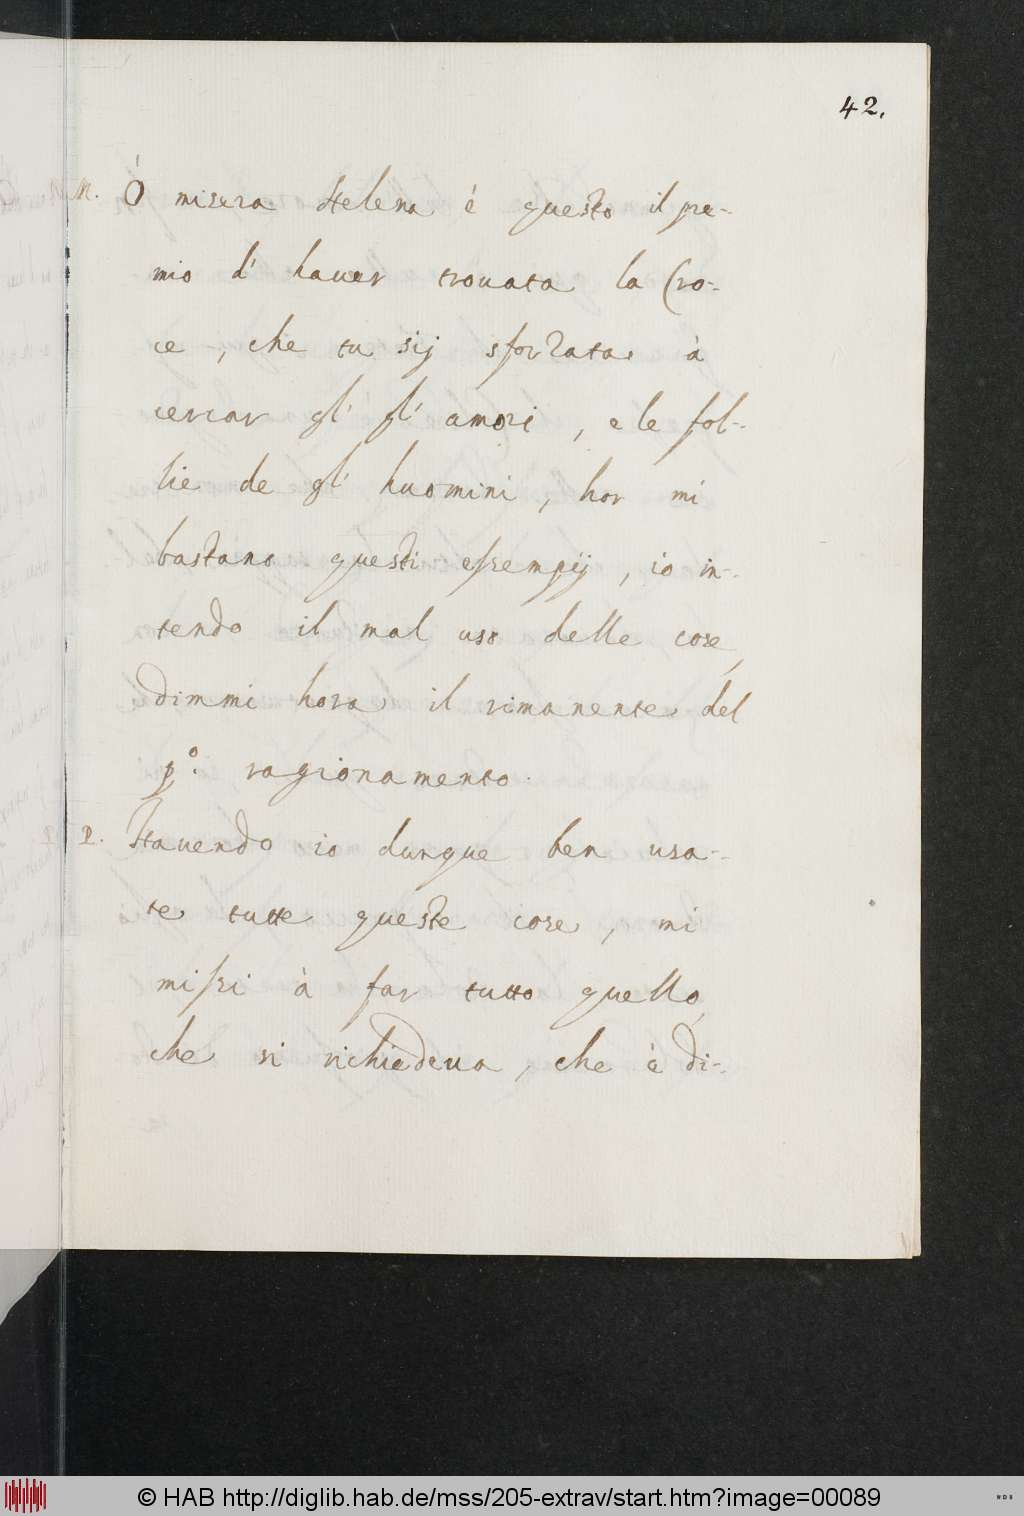 42.
M. Ó misera Helena é questo il pre-
mio d' hauer trouata la Cro-
ce, che tu sij sforzata à
cercar gl' gl' amori, e le fol-
lie de gl' huomini, hor mi
bastano questi essempij, io in-
tendo il mal uso delle cose,
dimmi hora il rimanente del
p.º ragionamento.
P. Hauendo io dunque ben usa-
te tutte queste cose, mi
missi à far tutto quello,
che si richiedeua, che è di-
© HAB http://diglib.hab.de/mss/205-extrav/start.htm?image=00089